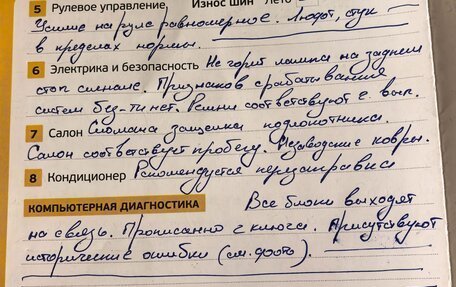 5 Рулевое управление Износ шин Лето
Усилие на руле равномерное. Люфт, стук –
в пределах нормы.
6 Электрика и безопасность Не горит лампа на заднем
стоп сигнале. Признаков срабатывания
систем без-ти нет. Ремни соответствуют г. вып.
7 Салон Сломана защелка подлокотника.
Салон соответствует пробегу. Незаводские ковры.
8 Кондиционер Рекомендуется перезаправка
КОМПЬЮТЕРНАЯ ДИАГНОСТИКА Все блоки выходят
на связь. Прописанно 2 ключа. Присутствуют
исторические ошибки (см. фото).